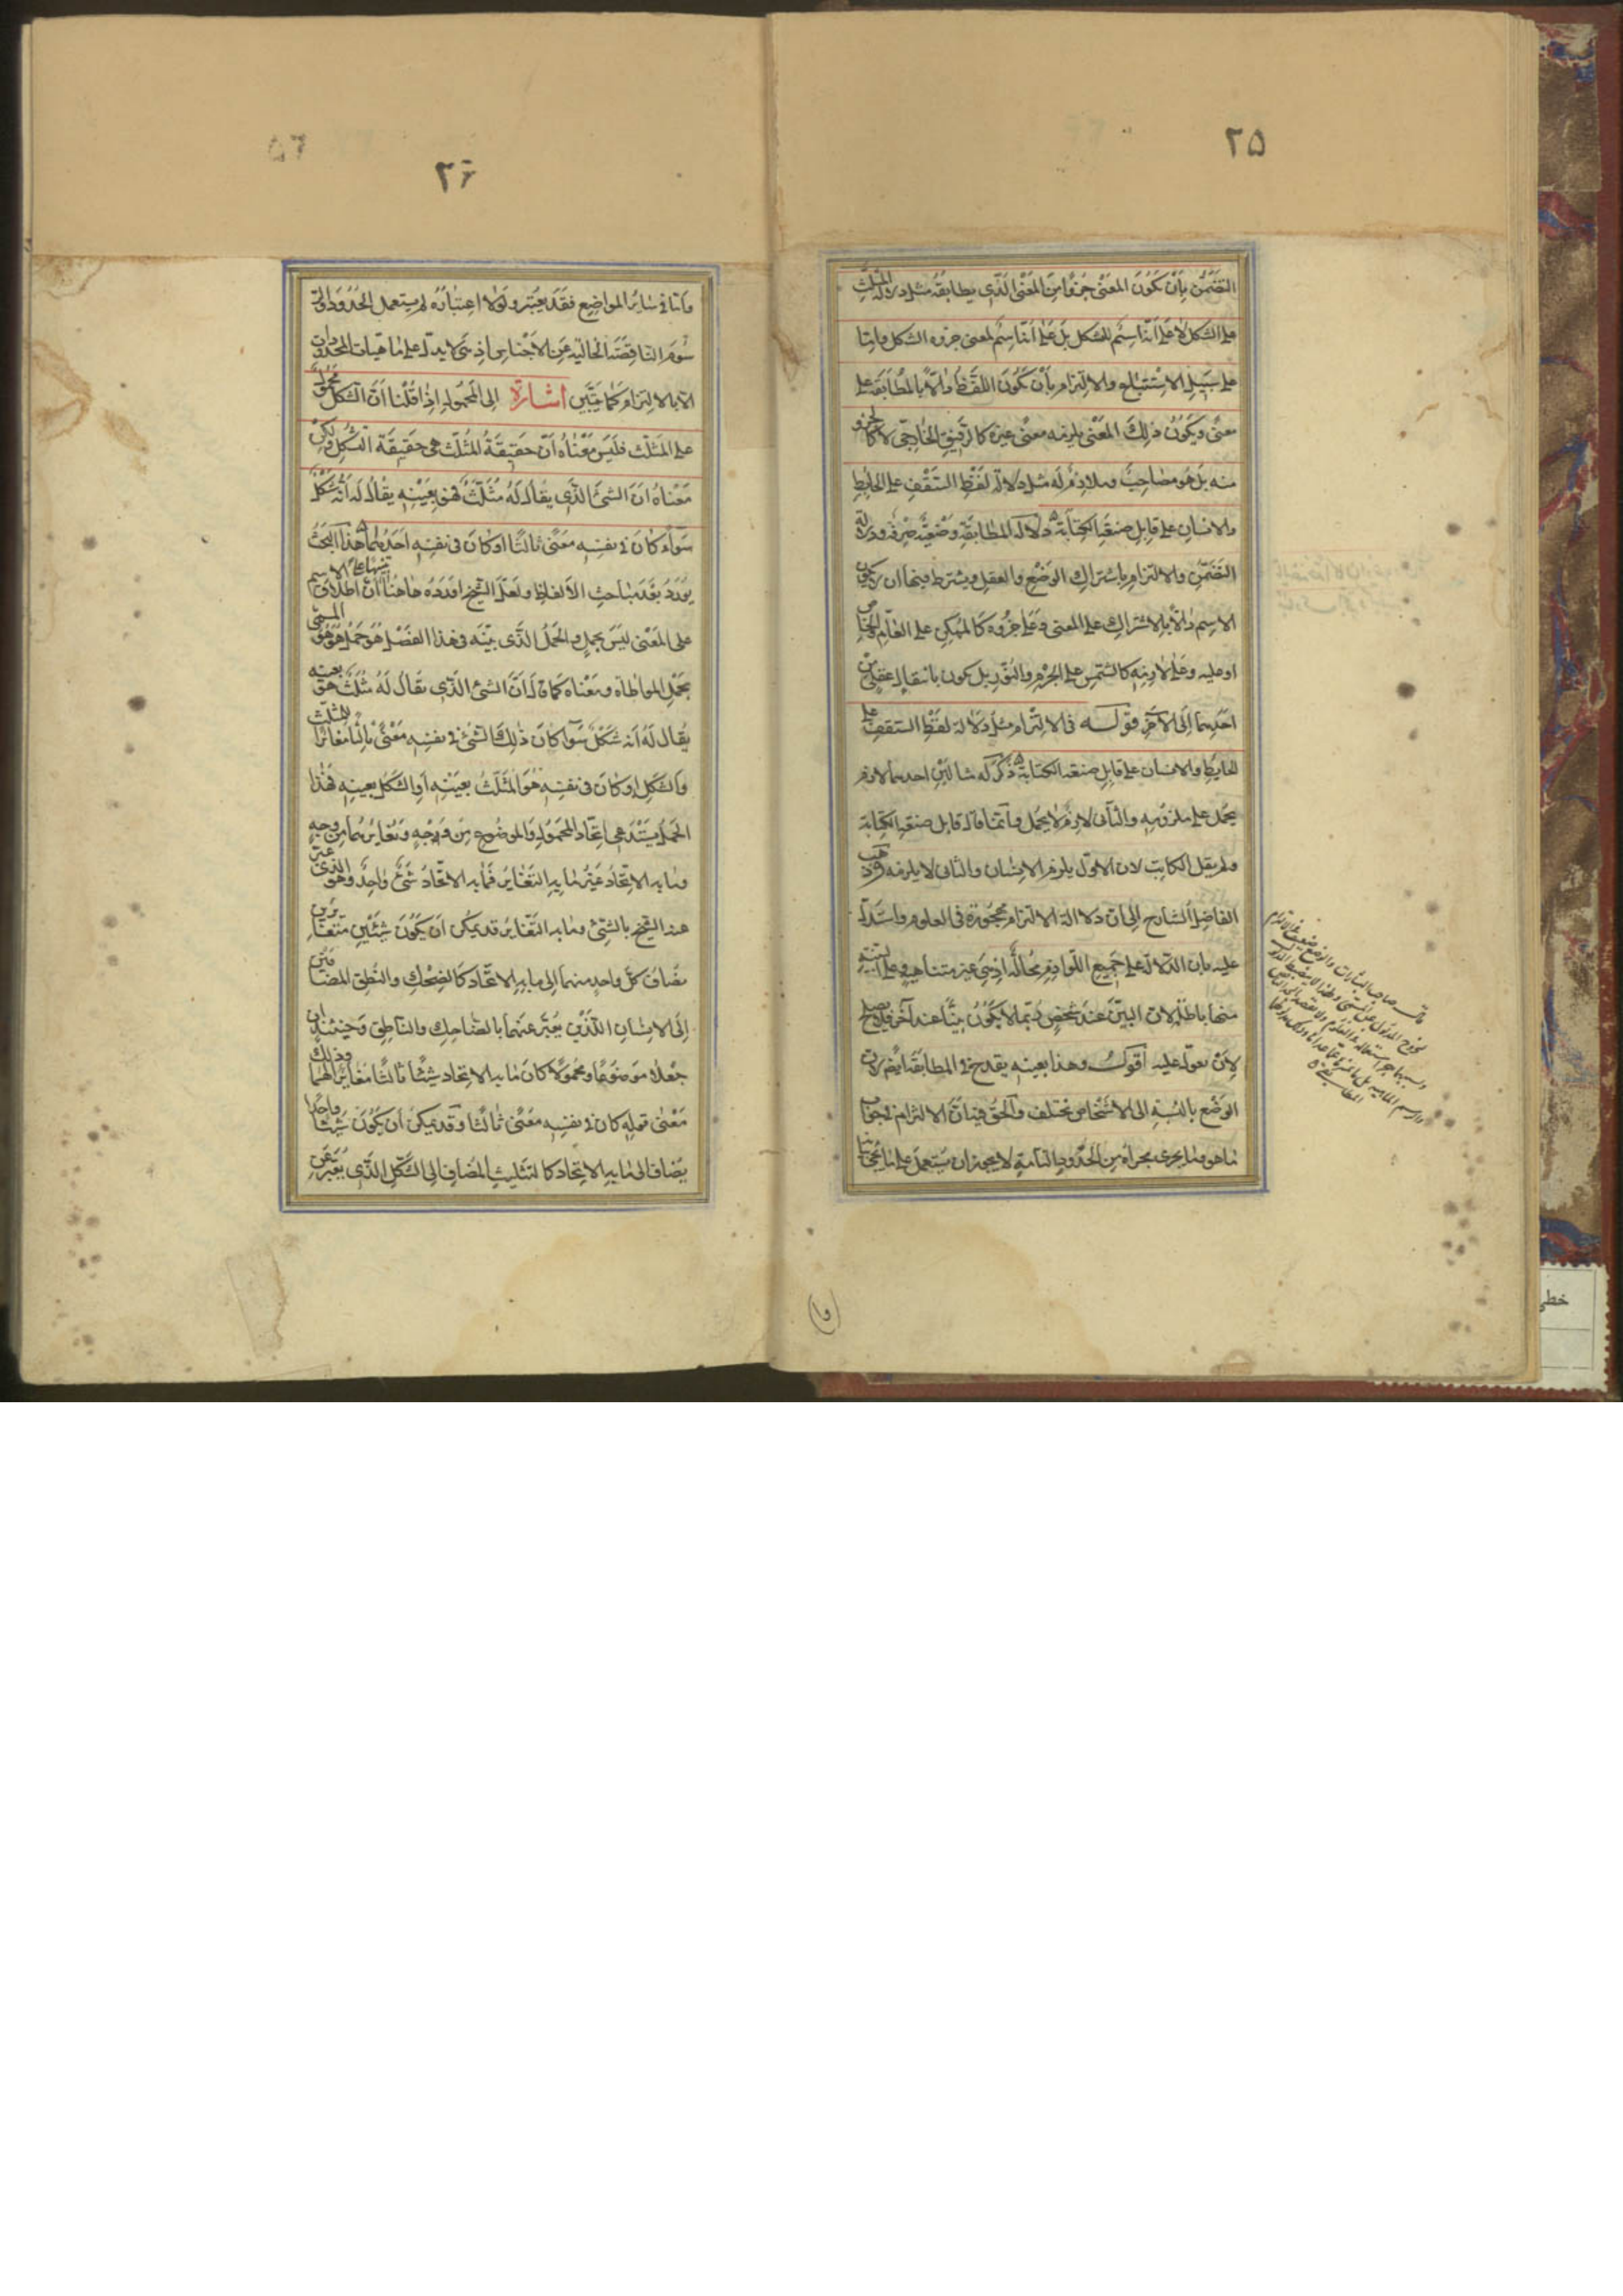 ٢٥
التضمن بأن يكون المعنى جزءًا من المعنى الذى يطابقه مثل دلالة المثلث
على الشكل لا على أنه اسم للشكل بل على أنه اسم لمعنى جزوه الشكل وامّا
على سبيل الاستتباع والالتزام بأن يكون اللفظ دالاً بالمطابقة على
معنى ويكون ذلك المعنى يلزمه معنى غيره كالرفيق الخارجى لا كالجزو
منه بل هو مصاحب وملازم له مثل دلالة لفظ السقف على الحايط
والانسان على قابل صنعة الكتابة دلالة المطابقة وضعية صرفة ودلالة
التضمن والالتزام باشتراك الوضع والعقل ويشترط فيهما ان لا يكون
الاسم دالاً بالاشتراك على المعنى وعلى جزوه كالممكن على العام والخاص
او عليه وعلى لازمه كالشمس على الجرم والنور بل يكون بانتقال عقلى من
احديهما الى الآخر قوله فى الالتزام مثل دلالة لفظ السقف على
الحايط والانسان على قابل صنعة الكتابة ذكر له مثالين احدهما لازم
يحمل على ملزومه والثانى لازم لا يحمل وانما قال قابل صنعة الكتابة
ولم يقل الكاتب لان الاول يلزم الانسان والثانى لا يلزمه وذهب
الفاضل الشارح الى ان دلالة الالتزام مهجورة فى العلوم واستدل
عليه بان الدلالة على جميع اللوازم محالة اذ هى غير متناهية وعلى البينة
منها باطلة لان البين عند شخص ربما لا يكون بينًا عند آخر فلا يصلح
لان يعول عليه اقول وهذا بعينه يقدح فى المطابقة ايضًا لان
الوضع بالنسبة الى الاشخاص مختلف والحق فيه ان الالتزام فى جواب
ما هو وما يجرى مجراه من الحدود التامة لا يجوز ان يستعمل على ما يجئ بيانه
٢٦
وامّا فى سائر المواضع فقد يعتبر ولولا اعتباره لم يستعمل الحدود والر
سوم الناقصة الخالية عن الاجناس اذ هى لا يدل على ماهيات المحدودات
الا بالالتزام كما يتبين اشارة الى المحمول اذا قلنا ان الشكل محمول
على المثلث فليس معناه ان حقيقة المثلث هى حقيقة الشكل ولكن
معناه ان الشئ الذى يقال له مثلث فهو بعينه يقال له انه شكل
سواء كان فى نفسه معنى ثالثا او كان فى نفسه احدهما هذا البحث
يورد بعد مباحث الالفاظ ولعل الشيخ اورده هاهنا تنبيها على ان اطلاق الاسم
على المعنى ليس بحمل والحمل الذى بينه فى هذا الفصل هو حمل هو هو المسمى
بحمل المواطاة ومعناه كما ذكر ان الشئ الذى يقال له مثلث هو بعينه
يقال له انه شكل سواء كان ذلك الشئ فى نفسه معنى ثالثا مغايرا للمثلث
والشكل او كان فى نفسه هو المثلث بعينه او الشكل بعينه فهذا
الحمل يستدعى اتحاد المحمول والموضوع من وجه وتغايرهما من وجه
وما به الاتحاد غير ما به التغاير فما به الاتحاد شئ واحد وهو الذى عبر
عنه الشيخ بالشئ وما به التغاير قد يمكن ان يكون شيئين متغايرين
يضاف كل واحد منهما الى ما به الاتحاد كالضحك والنطق المضافين
الى الانسان اللذين يعبر عنهما بالضاحك والناطق وحينئذ ان
جعلا موضوعا ومحمولا كان ما به الاتحاد شيئا ثالثا مغايرا لهما وذلك
معنى قوله كان فى نفسه معنى ثالثا وقد يمكن ان يكون شيئا واحدا
يضاف الى ما به الاتحاد كالتثليث المضاف الى الشكل الذى يعبر عن
خطى